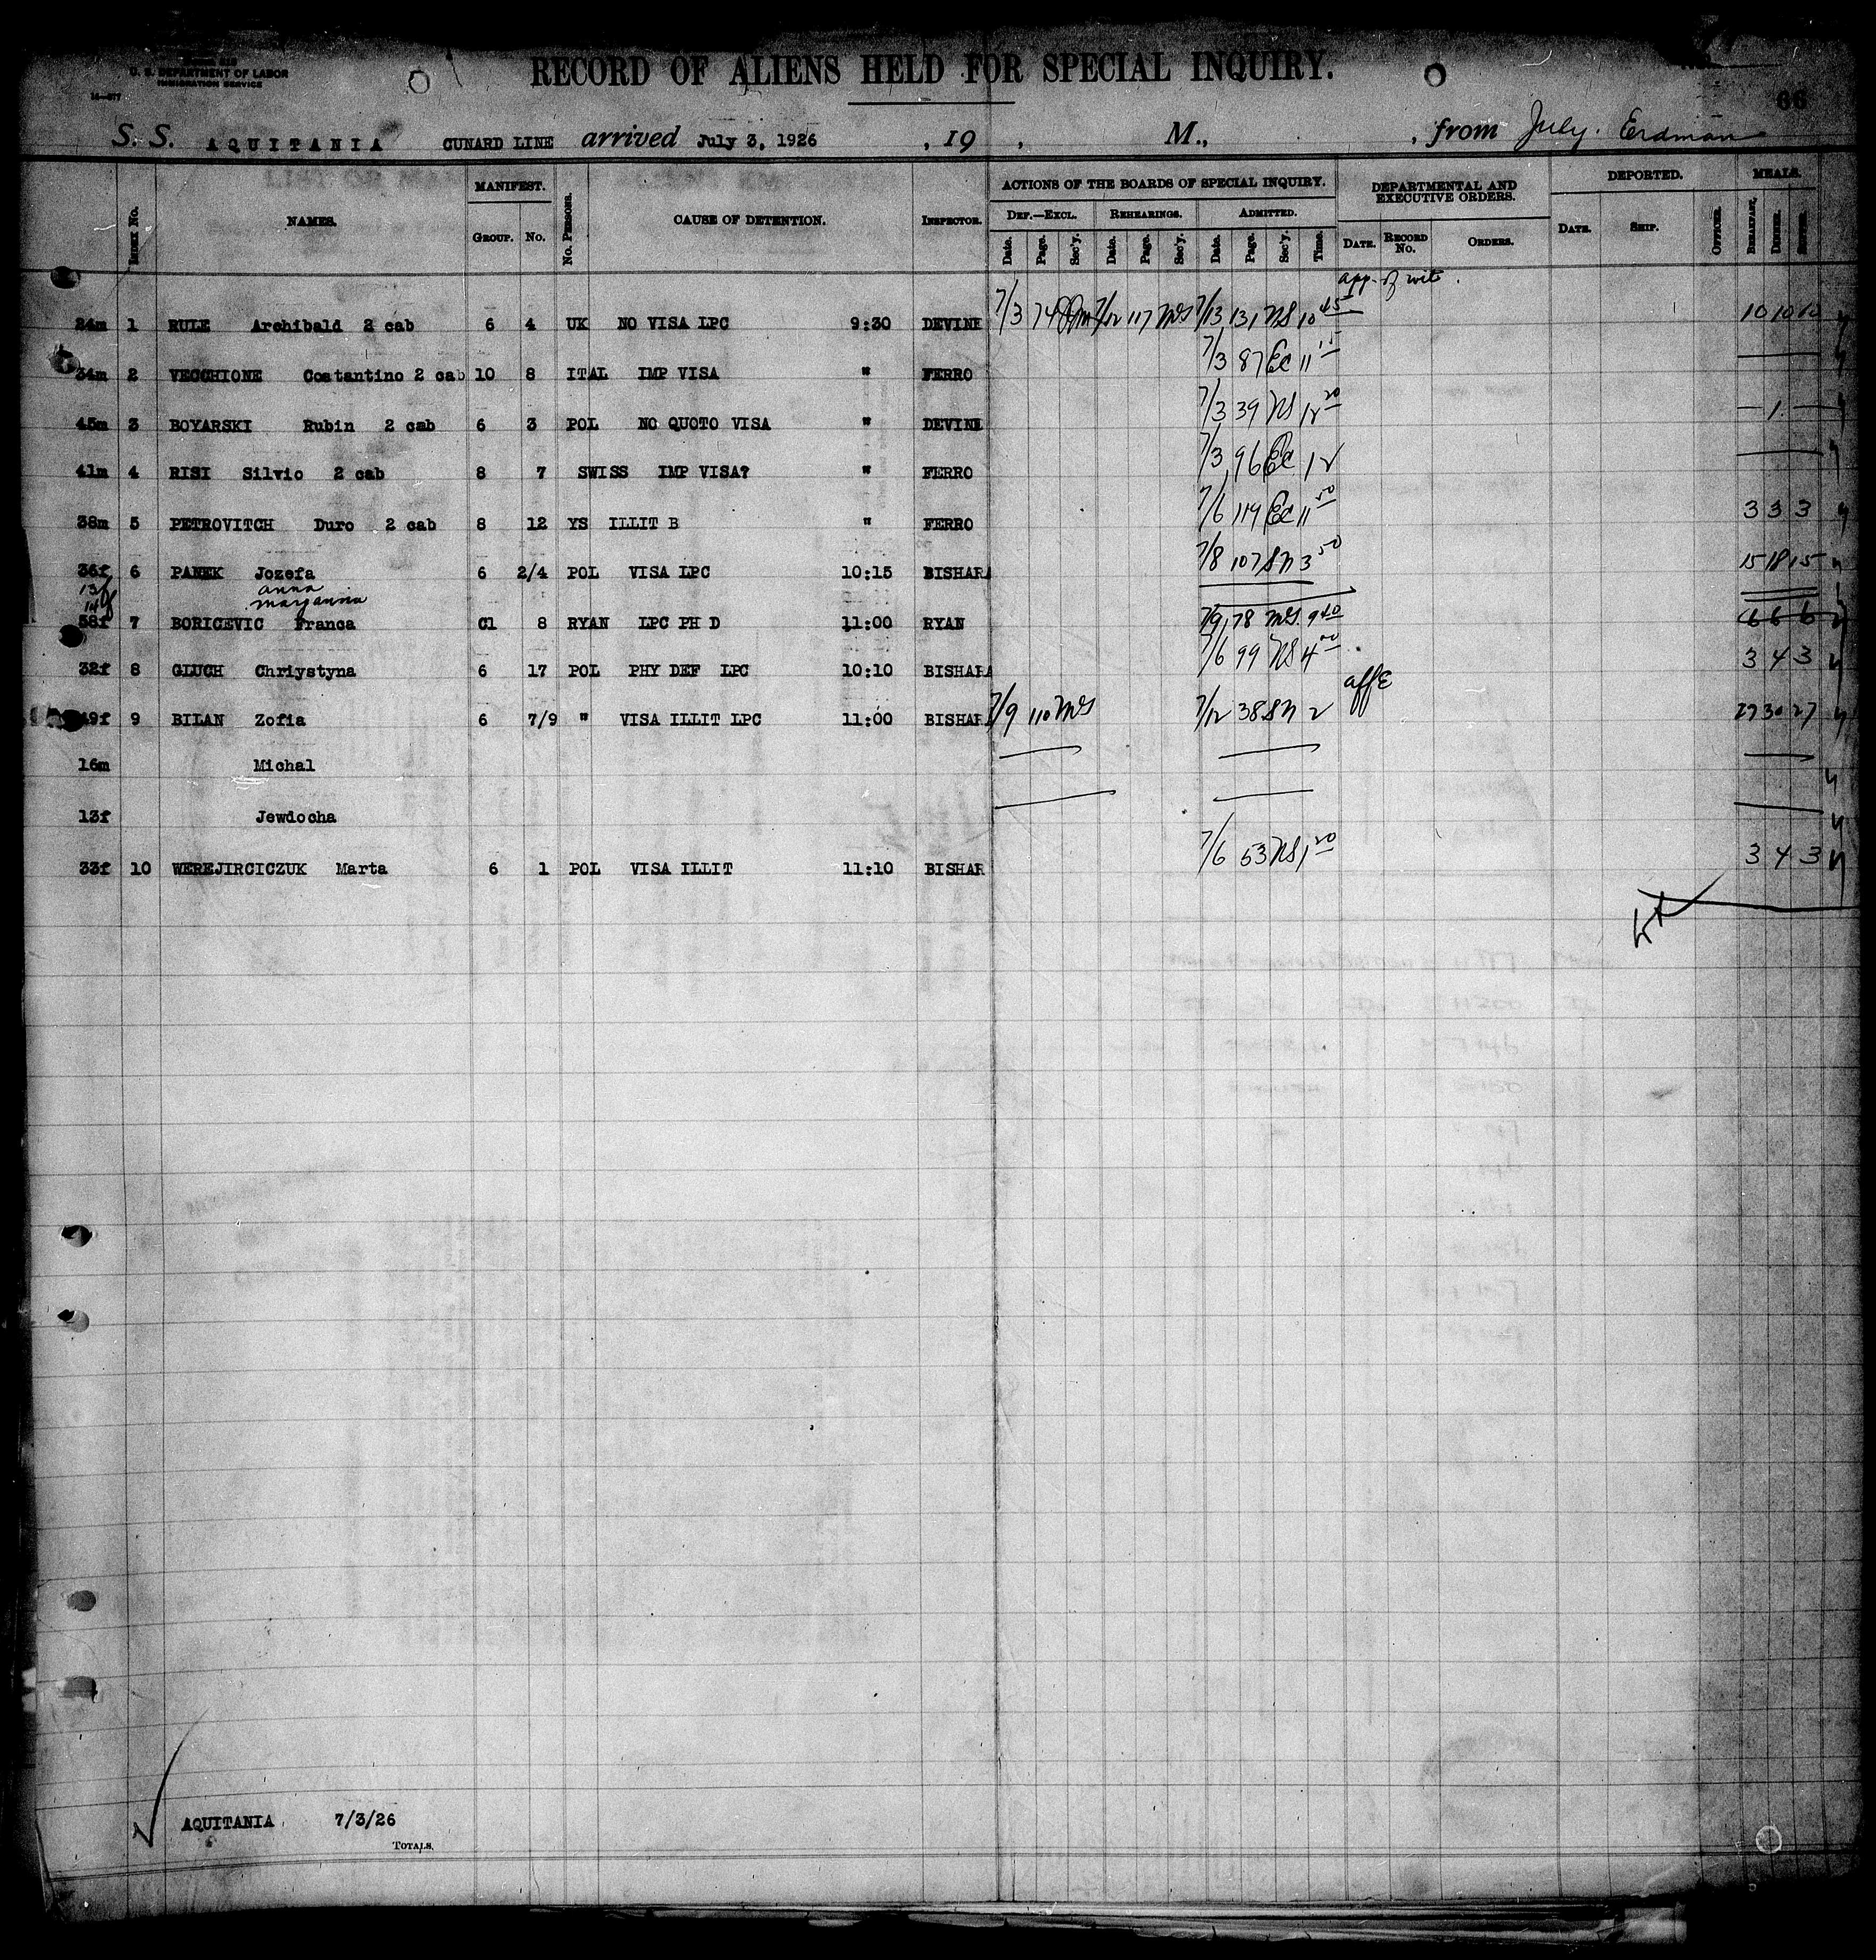 U. S. DEPARTMENT OF LABOR
IMMIGRATION SERVICE
RECORD OF ALIENS HELD FOR SPECIAL INQUIRY.
66
S. S. AQUITANIA CUNARD LINE arrived July 3, 1926 , 19 , M., , from July. Erdman
INDEX NO. NAMES. MANIFEST. GROUP. NO. NO. PERSONS. CAUSE OF DETENTION. INSPECTOR. ACTIONS OF THE BOARDS OF SPECIAL INQUIRY. DEF.—EXCL. Date. Page. Sec'y. REHEARINGS. Date. Page. Sec'y. ADMITTED. Date. Page. Sec'y. Time. DEPARTMENTAL AND EXECUTIVE ORDERS. DATE. RECORD NO. ORDERS. DEPORTED. DATE. SHIP. OFFICER. MEALS. BREAKFAST. DINNER. SUPPER.
app. of wit.
24m 1 RULE Archibald 2 cab 6 4 UK NO VISA LPC 9:30 DEVINE 7/3 74 7/12 117 MS 7/13 131 NS 10 45 10 10 10
34m 2 VECCHIONE Costantino 2 cab 10 8 ITAL IMP VISA " FERRO 7/3 87 EC 11 15
45m 3 BOYARSKI Rubin 2 cab 6 3 POL NO QUOTO VISA " DEVINE 7/3 39 NS 12 20 — 1 —
41m 4 RISI Silvio 2 cab 8 7 SWISS IMP VISA? " FERRO 7/3 96 EC 12
38m 5 PETROVITCH Duro 2 cab 8 12 YS ILLIT B " FERRO 7/6 119 EC 11 50 3 3 3
36f 6 PANEK Jozefa 6 2/4 POL VISA LPC 10:15 BISHARA 7/8 107 SN 3 50 15 18 15
13f anna
14f maryanna
58f 7 BORICEVIC Franca C1 8 RYAN LPC PH D 11:00 RYAN 7/9 78 MS 9 40 6 6 6
32f 8 GLUCH Chriystyna 6 17 POL PHY DEF LPC 10:10 BISHARA 7/6 99 NS 4 00 3 4 3
49f 9 BILAN Zofia 6 7/9 " VISA ILLIT LPC 11:00 BISHAR 7/9 110 MS 7/12 38 SN 2 aff E 27 30 27
16m Michal
13f Jewdocha
33f 10 WEREJIRCICZUK Marta 6 1 POL VISA ILLIT 11:10 BISHAR 7/6 53 NS 1 20 3 4 3
AQUITANIA 7/3/26
TOTALS.